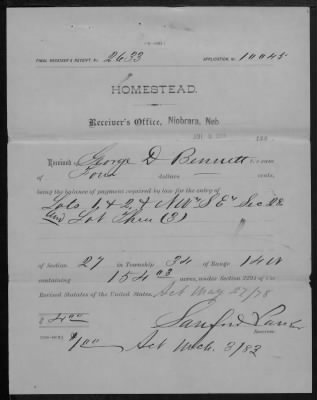 FINAL RECEIVER'S RECEIPT No. 2633 APPLICATION No. 10045
HOMESTEAD.
Receiver's Office, Niobrara, Neb
Received George D Bennett the sum
of Four dollars cents,
being the balance of payment required by law for the entry of
Lots 1, & 2, & NW⁴ S E⁴ Sec 28
and Lot Three (3)
of Section 27 in Township 34 of Range 14 W
containing 154 03 acres, under Section 2291 of the
Revised Statutes of the United States. Act May 27/78
$ 4 00 Sanford Parker
Receiver.
$1 00 Act Mch. 3/83